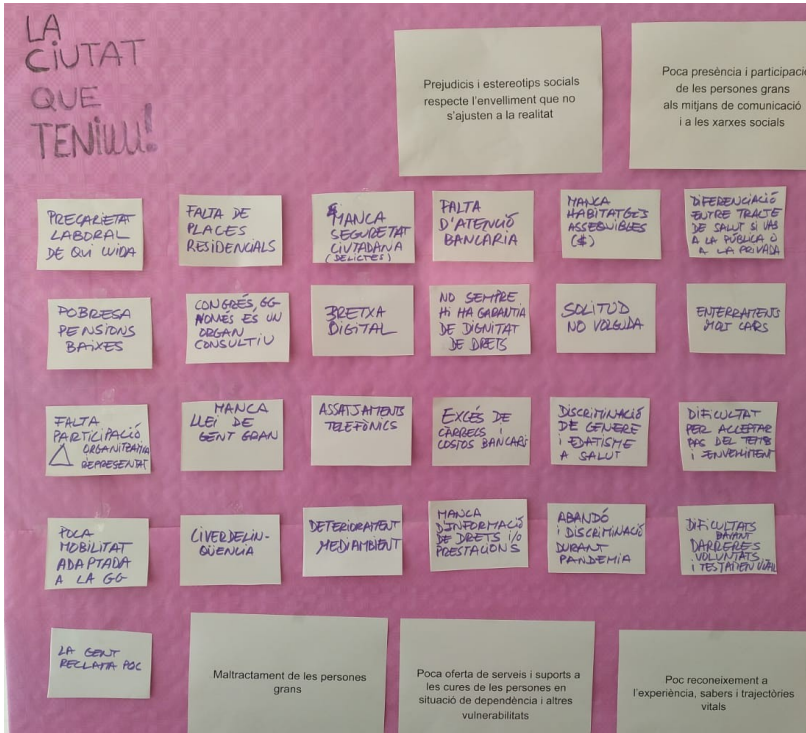 LA
CIUTAT
QUE
TENIM!
Prejudicis i estereotips socials
respecte l'envelliment que no
s'ajusten a la realitat
Poca presència i participació
de les persones grans
als mitjans de comunicació
i a les xarxes socials
PRECARIETAT
LABORAL
DE QUI CUIDA
FALTA DE
PLACES
RESIDENCIALS
MANCA
SEGURETAT
CIUTADANA
(DELICTES)
FALTA
D'ATENCIÓ
BANCARIA
MANCA
HABITATGES
ASSEQUIBLES
($)
DIFERENCIACIÓ
ENTRE TRACTE
DE SALUT SI VAS
A LA PÚBLICA O
A LA PRIVADA
POBRESA
PENSIONS
BAIXES
CONGRÉS, GG
NOMÉS ÉS UN
ORGAN
CONSULTIU
BRETXA
DIGITAL
NO SEMPRE
HI HA GARANTIA
DE DIGNITAT
DE DRETS
SOLITUD
NO VOLGUDA
ENTERRAMENS
MOLT CARS
FALTA
PARTICIPACIÓ
ORGANITZATIVA
REPRESENTAT
MANCA
LLEI DE
GENT GRAN
ASSATJAMENTS
TELEFÒNICS
EXCÉS DE
CÀRRECS I
COSTOS BANCARS
DISCRIMINACIÓ
DE GÈNERE
I EDATISME
A SALUT
DIFICULTAT
PER ACCEPTAR
PAS DEL TEMPS
I ENVELLIMENT
POCA
MOBILITAT
ADAPTADA
A LA GG
CIVERDELIN-
QÜENCIA
DETERIORAMENT
MEDIAMBIENT
MANCA
D'INFORMACIÓ
DE DRETS I/O
PRESTACIONS
ABANDÓ
I DISCRIMINACIÓ
DURANT
PANDEMIA
DIFICULTATS
DARRERES
VOLUNTATS
I TESTAMEN VITAL
LA GENT
RECLAMA POC
Maltractament de les persones
grans
Poca oferta de serveis i suports a
les cures de les persones en
situació de dependència i altres
vulnerabilitats
Poc reconeixement a
l'experiència, sabers i trajectòries
vitals